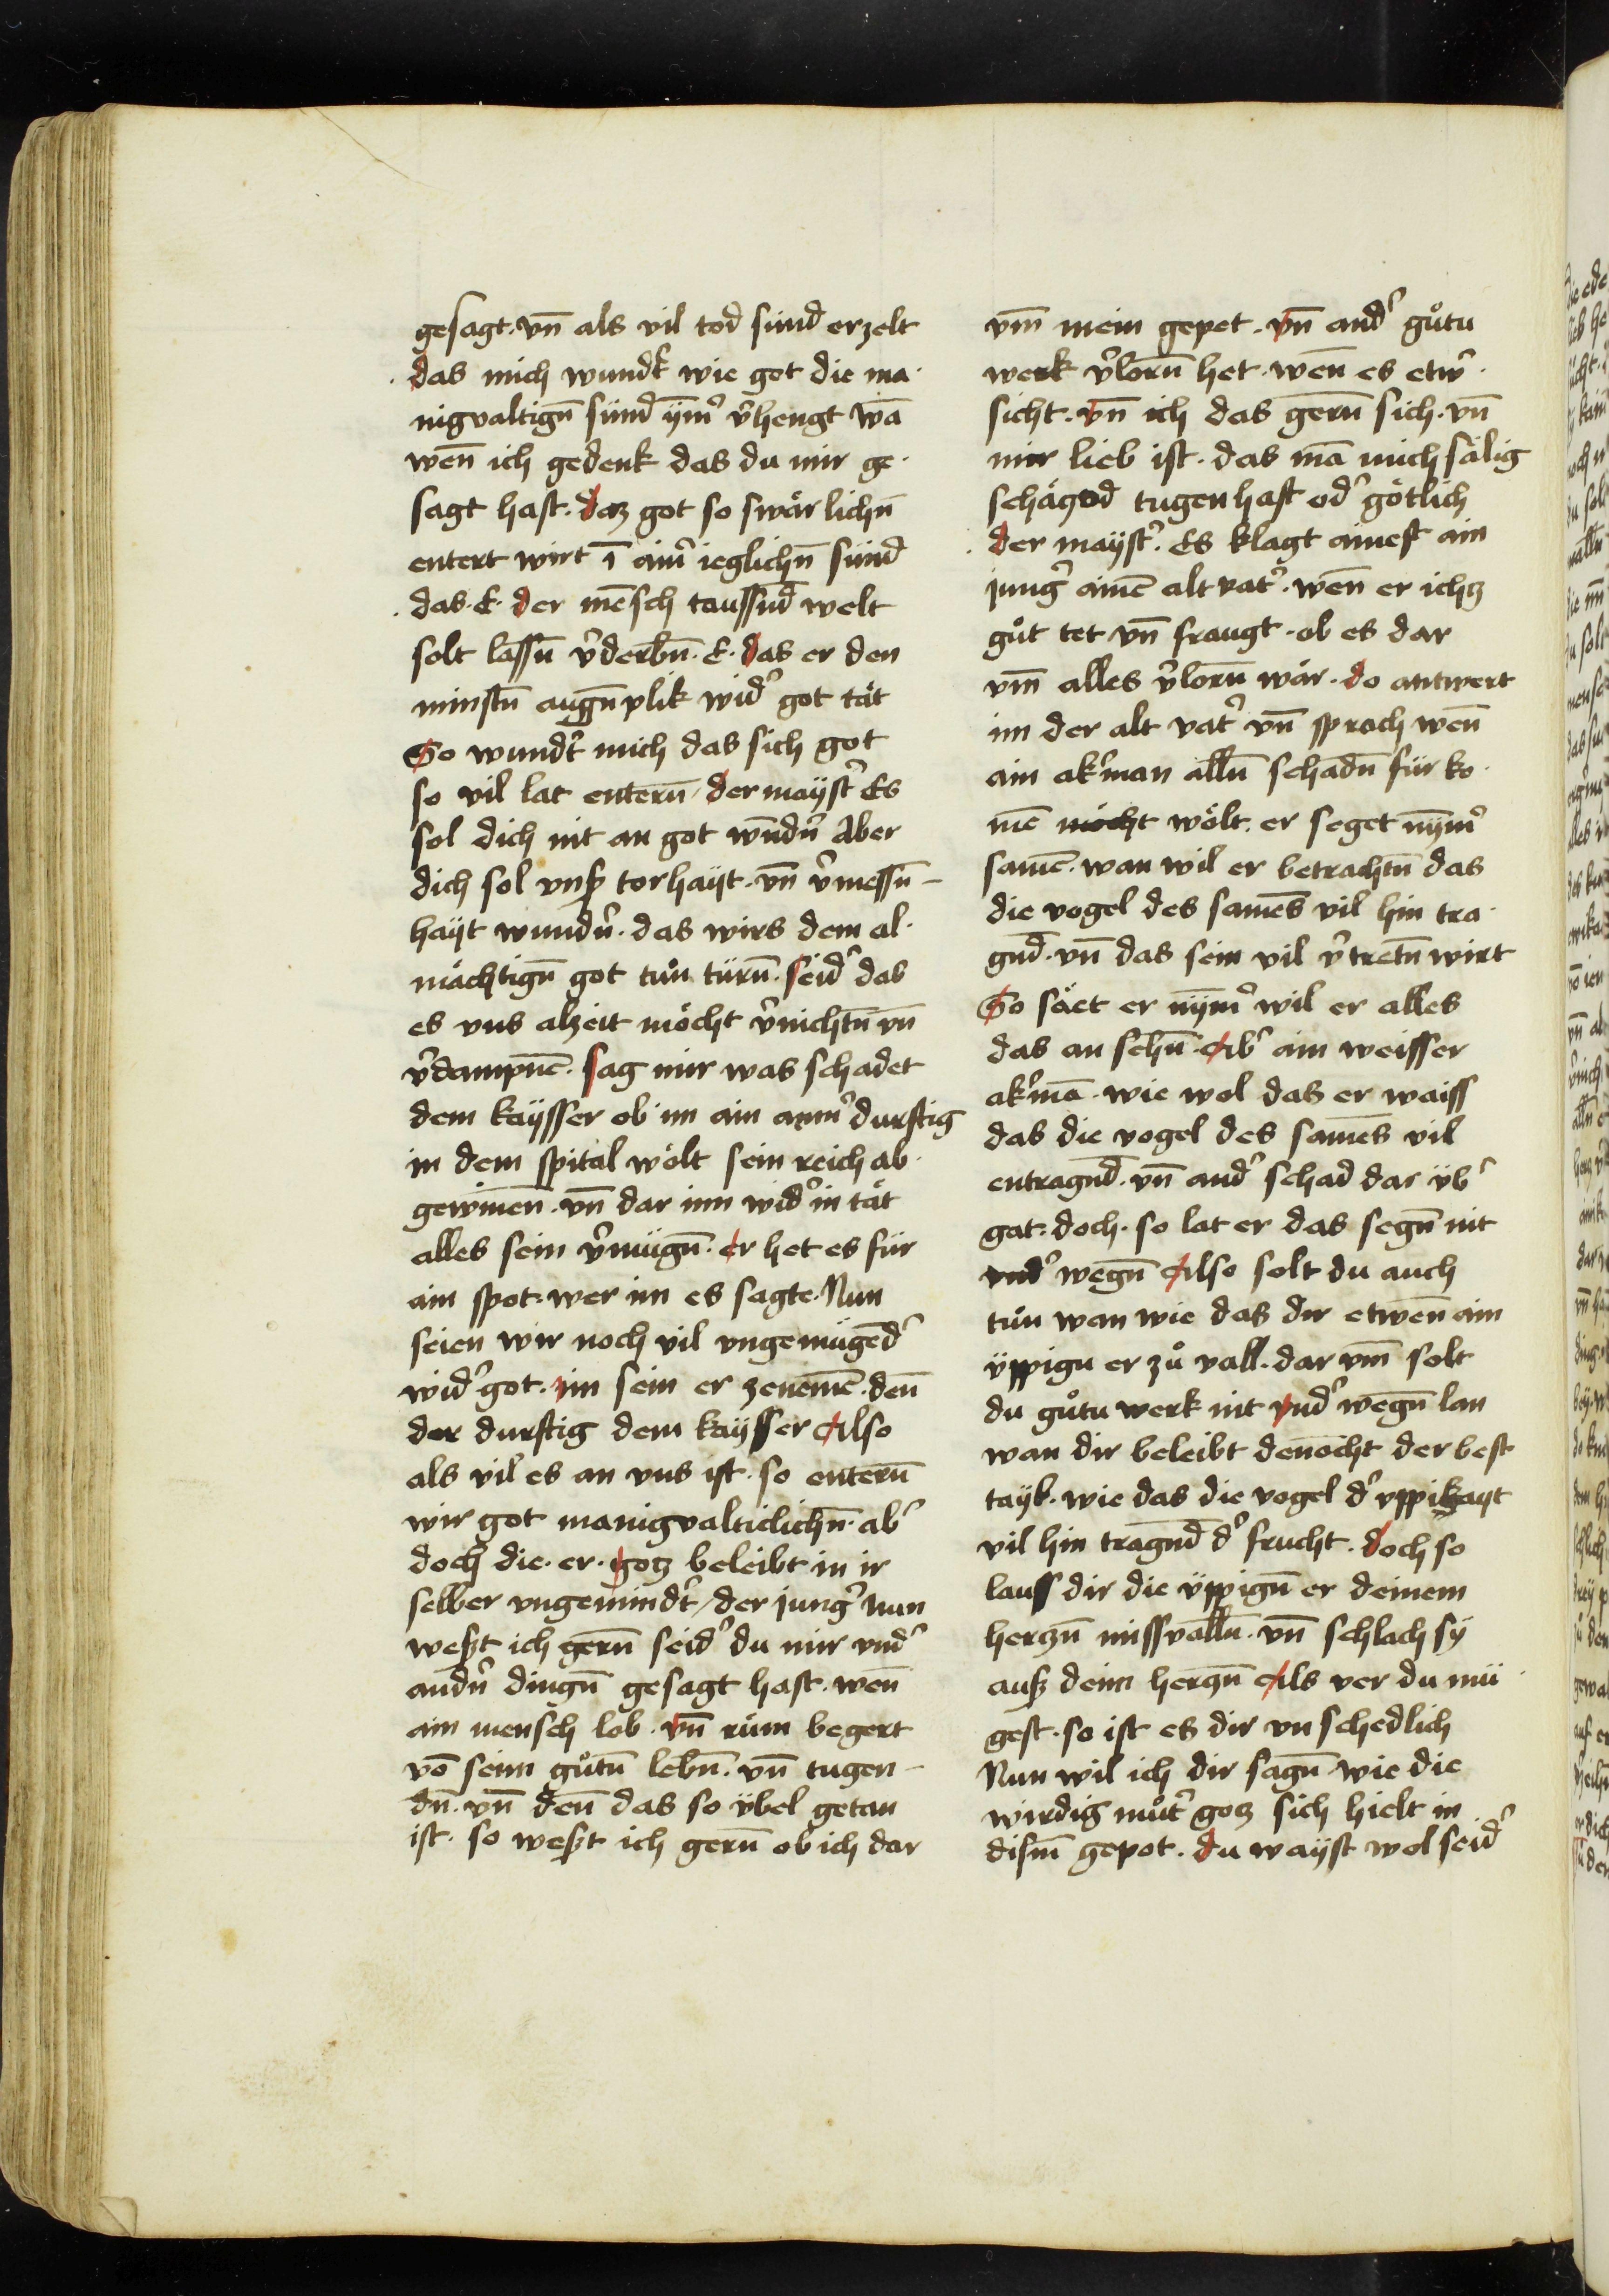 gesagt. vn̄ als vil tod sünd erzelt
das mich wundt᷑ wie got die ma-
nigvaltign̄ sünd ym̄᷑ v᷑hengt wā
wen̄ ich gedenk das du mir ge-
sagt hast. daz got so swärlichn̄
entert wirt ī aim᷑ ieglichn̄ sünd
das. E. der mēsch taussnd̄ welt
solt lassn̄ v᷑derbn̄. E. das er den
minstn̄ augnplik wid᷑ got tät
So wundt᷑ mich das sich got
so vil lat entern̄ / der mayst᷑ Es
sol dich nit an got wn̄dn᷑ Aber
dich sol vnß torhayt. vn̄ v᷑messn̄-
hayt wundn᷑. das wirs dem al-
mächtign̄ got tuͦn türn̄. seid᷑ das
es vns alzeit möcht v᷑nichtn̄ vn̄
v᷑dampnē. sag mir was schadet
dem kaysser ob im ain arm᷑ durftig
in dem spital wölt sein reich ab-
gewinen̄. vn̄ dar inn wid᷑ in tät
alles sein v᷑mügn̄. er het es für
ain spot. wer im es sagte. Nun
seien wir noch vil vngemügēd᷑
wid᷑ got. im sein er zenemē. den̄
der durftig dem kaysser Also
als vil es an vns ist. so entern̄
wir got manigvalticlichn̄. ab᷑
doch die. er. gotz beleibt in ir
selber vngemindt᷑ / der jung᷑ Nun
weßt ich gern̄ seid᷑ du mir vnd᷑
andn᷑ dingn̄ gesagt hast. wen̄
ain mensch lob. vn̄ ruͦm begert
vō seim guͦtn̄ lebn̄. vn̄ tugen-
dn̄. vn̄ den̄ das so übel getan
ist. so weßt ich gern̄ ob ich dar
vm̄ mein gepet. vn̄ and᷑ guͦtu
werk v᷑lorn̄ het. wen̄ es etw᷑
sicht. vn̄ ich das gern̄ sich. vn̄
mir lieb ist. das mā mich sälig
schätz od tugenhaft od᷑ götlich
der mayst᷑. Es klagt ainest ain
jung᷑ ainē altvat᷑. wen̄ er ichz
guͦt tet vn̄ fraugt. ob es dar
vm̄ alles v᷑lorn̄ wär. do antwert
im der alt vat᷑ vn̄ sprach wen̄
ain ak᷑man alln̄ schadn̄ für ko-
mē möcht wölt. er seget nym̄᷑
samē. wan wil er betrachtn̄ das
die vogel des samēs vil hin tra-
gnd̄. vn̄ das sein vil v᷑tretn̄ wirt
So säet er nym̄᷑ wil er alles
das an sehn̄. Ab᷑ ain weisser
ak᷑mā. wie wol das er waiss
das die vogel des samēs vil
entragnd̄. vn̄ and᷑ schad dar üb᷑
gat. doch. so lat er das segn̄ nit
vnd᷑ wegn̄ Also solt du auch
tuͦn wan wie das dir etwen̄ ain
üppigu er zuͦ vall. dar vm̄ solt
du guͦtu werk nit vnd᷑ wegn̄ lan
wan dir beleibt denocht der best
tayl. wie das die vogel d᷑ vppikayt
vil hin tragnd̄ d᷑ frucht. doch so
lauss dir die üppign̄ er deinem
hertzn̄ missvalln̄. vn̄ schlach sy
auß deim hertzn̄ Als ver du mü-
gest. so ist es dir vnschedlich
Nun wil ich dir sagn̄ wie die
wirdig muͦt᷑ gotz sich hielt in
dism̄ gepot. du wayst wol seid᷑